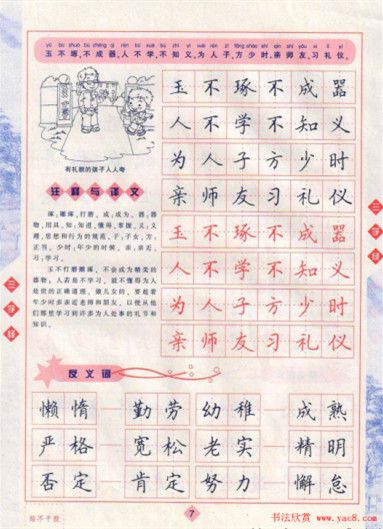 yù bù zhuó bù chéng qì rén bù xué bù zhī yì wéi rén zǐ fāng shào shí qīn shī yǒu xí lǐ yí
玉不琢,不成器,人不学,不知义,为人子,方少时,亲师友,习礼仪,
玉不琢不成器
人不学不知义
为人子方少时
亲师友习礼仪
玉不琢不成器
人不学不知义
为人子方少时
亲师友习礼仪
有礼貌的孩子人人夸
注释与译文
琢:雕琢,打磨,成:成为,器:器
物,用具,知:知道,懂得,掌握,义:义
理,思想和行为的规范,子:子女,方:
正当,少时:年少的时候,亲:亲近,
习:学习。
玉不打磨雕琢,不会成为精美的
器物;人若是不学习,就不懂得为人
处世的正确道理。做儿女的,要趁着
年少时多亲近老师和朋友,以便从他
们那里学习到许多为人处事的礼节和
知识。
三字经
三字经
反义词
懒惰—勤劳 幼稚—成熟
严格—宽松 老实—精明
否定—肯定 努力—懈怠
7
书法欣赏 www.yac8.com